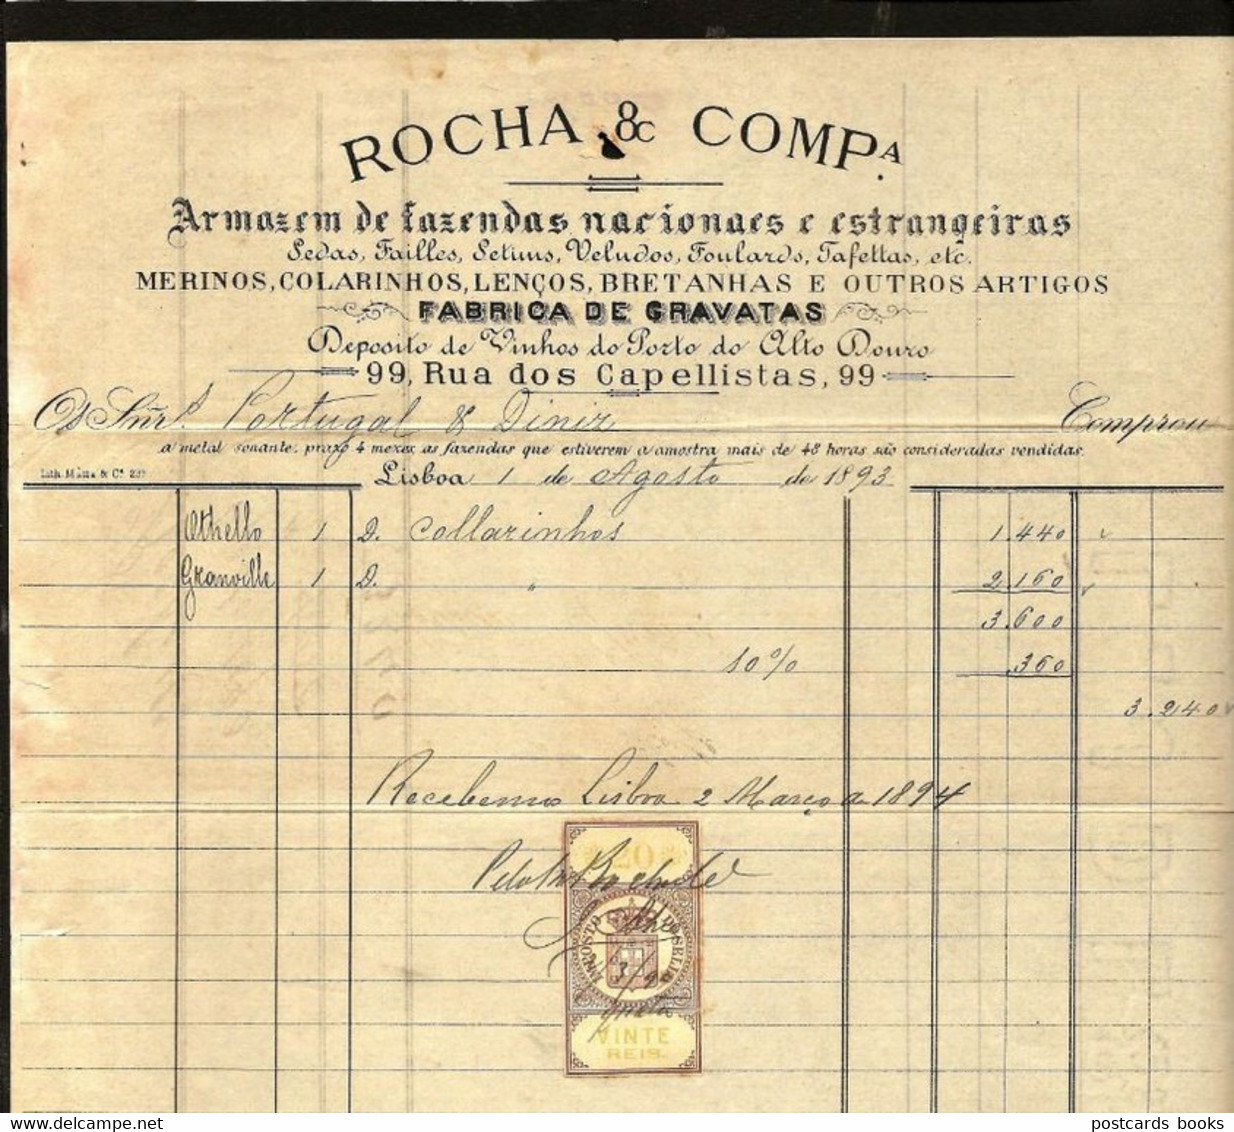 ROCHA & COMP.A
Armazem de fazendas nacionaes e estrangeiras
Sedas, Failles, Setims, Veludos, Foulards, Tafettas, etc.
MERINOS, COLARINHOS, LENÇOS, BRETANHAS E OUTROS ARTIGOS
FABRICA DE GRAVATAS
Deposito de Vinhos do Porto do Alto Douro
99, Rua dos Capellistas, 99
Os Snrs. Portugal & Diniz Comprou
a metal sonante, prazo 4 mezes, as fazendas que estiverem a amostra mais de 48 horas são consideradas vendidas.
Lith. & Ca.
Lisboa 1 de Agosto de 1893
Othello 1 D. Collarinhos 1.440
Granville 1 D. " 2.160
3.600
10% .360
3.240
Recebemos Lisboa 2 Março de 1894
20
IMPOSTO DO SELLO
VINTE
REIS.
postcards books